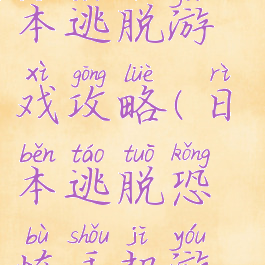 本逃脱游
xì gōng lüè rì
戏攻略(日
běn táo tuō kǒng
本逃脱恐
bù shǒu jī yóu
怖手机游